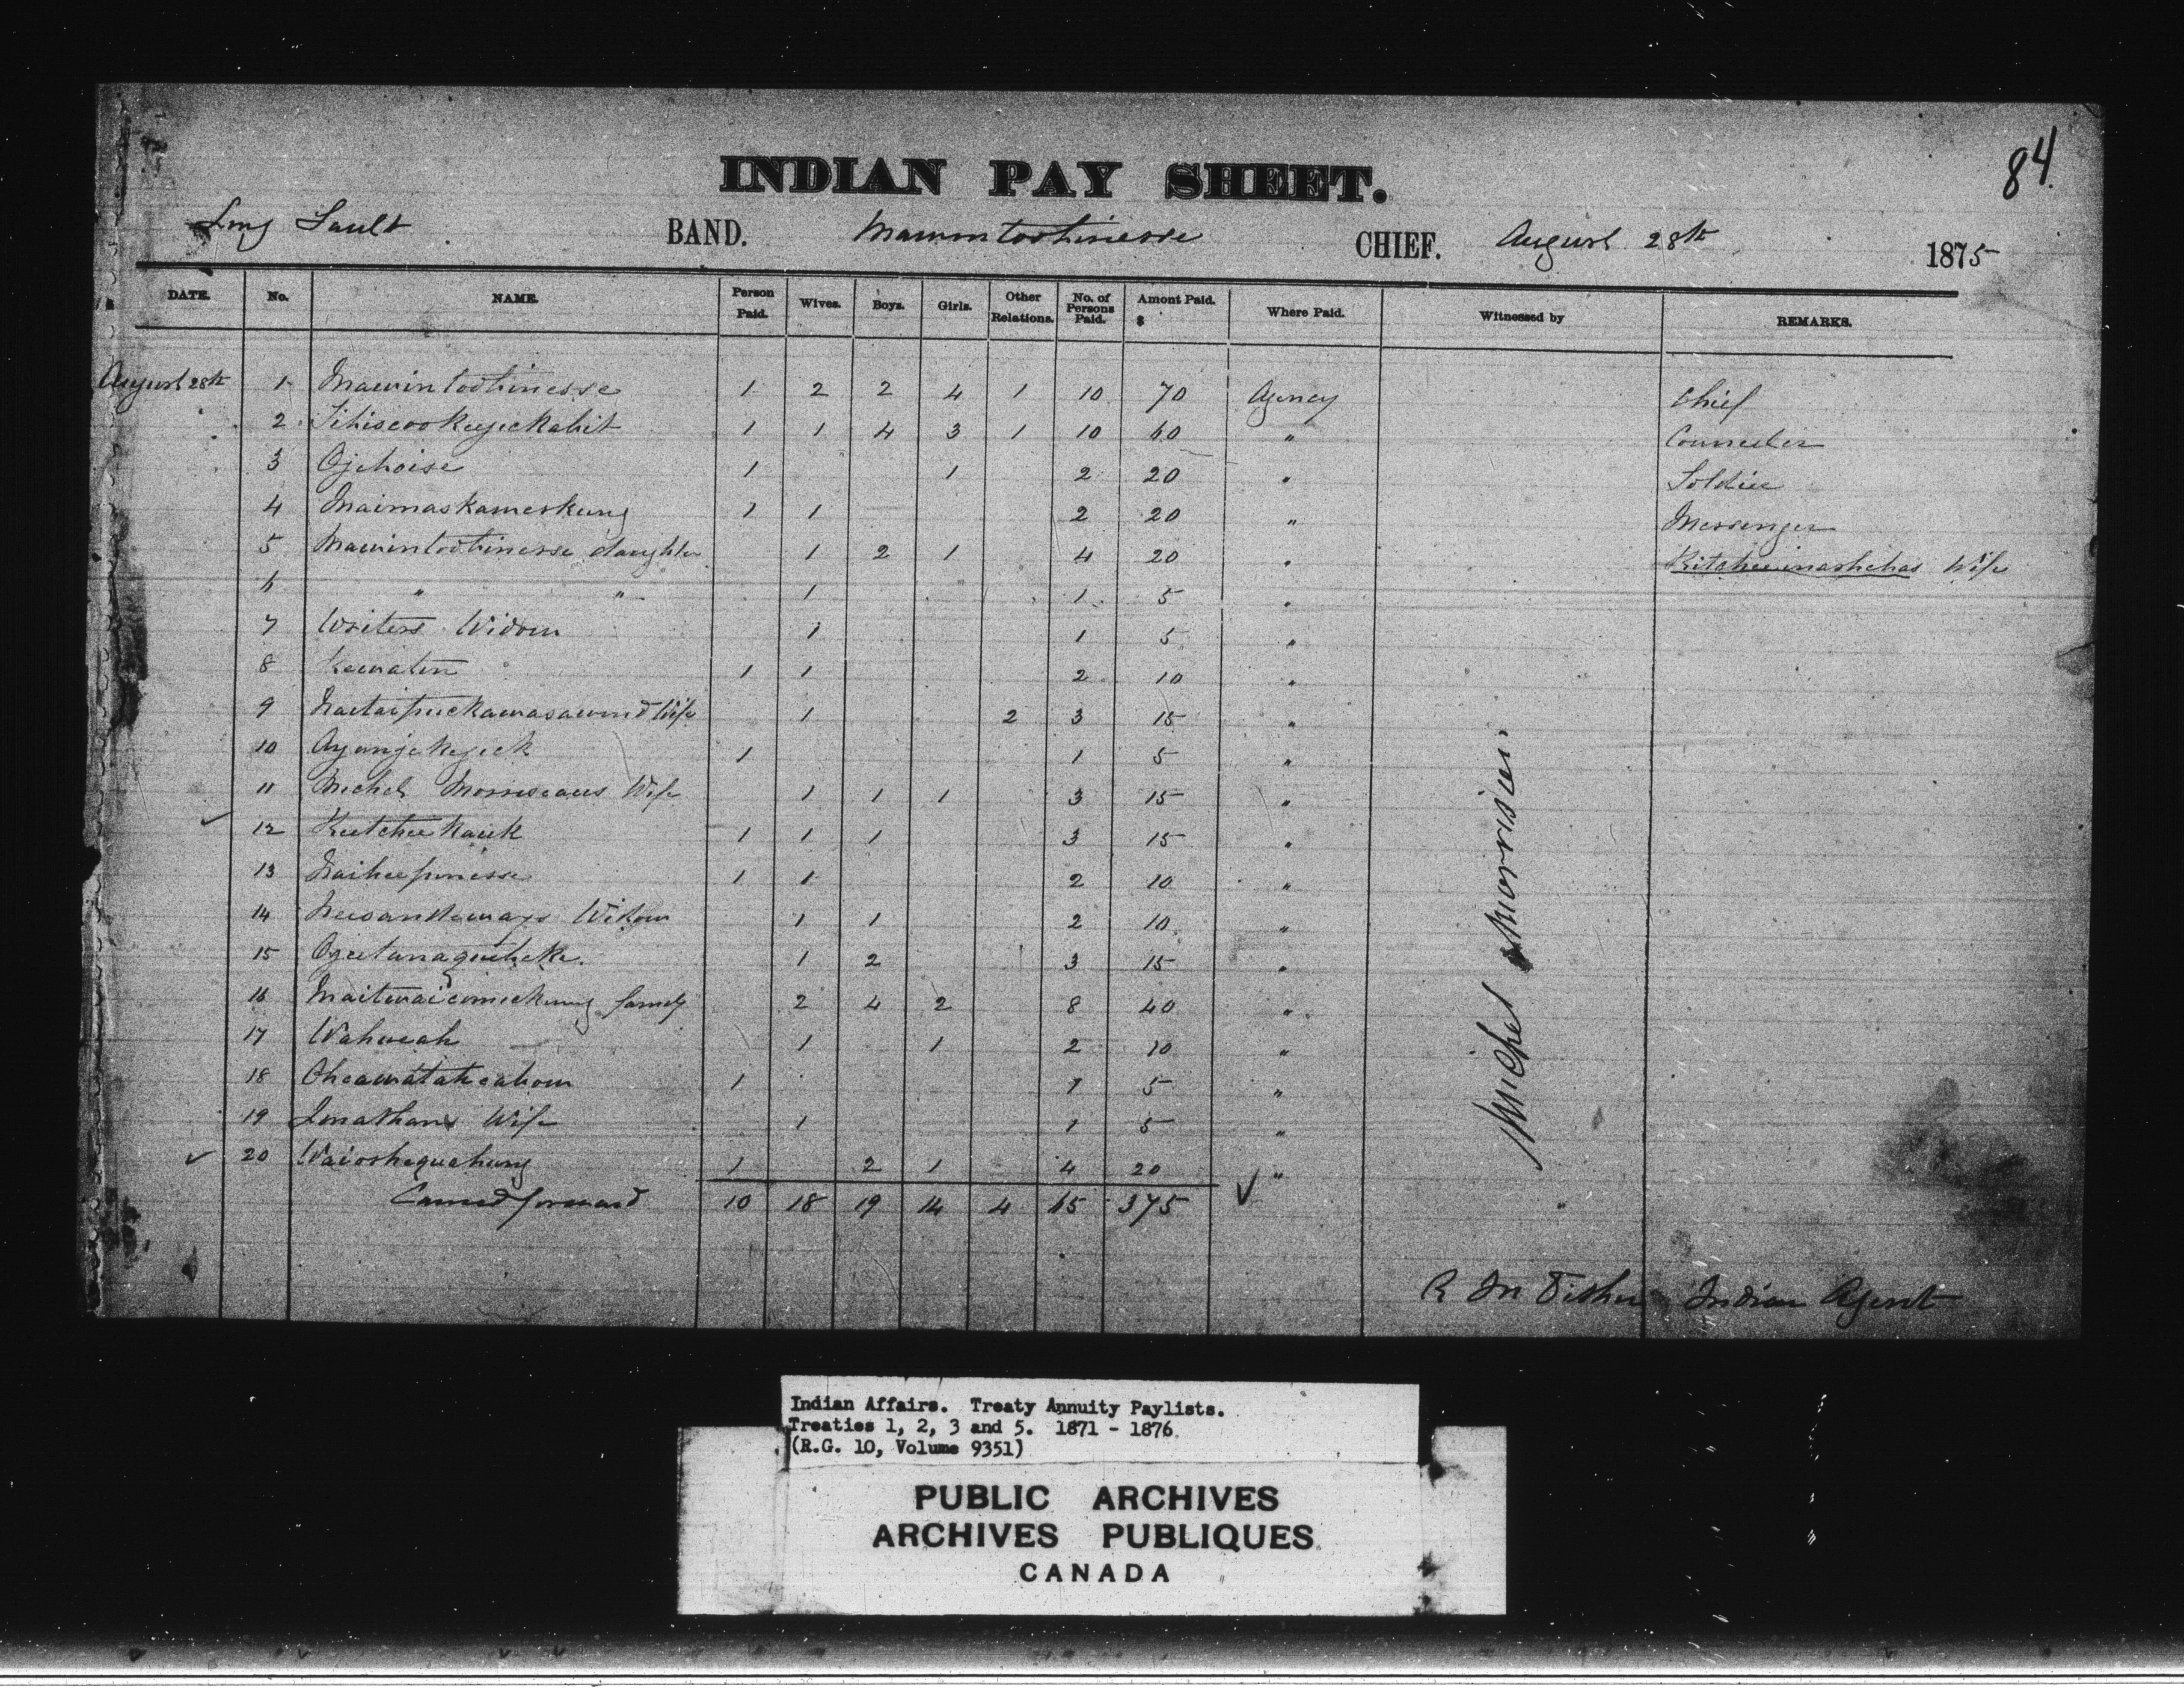 84.
INDIAN PAY SHEET.
Long Sault BAND. Mawintootinesse CHIEF. August 28th 1875
DATE. No. NAME. Person Paid. Wives. Boys. Girls. Other Relations. No. of Persons Paid. Amont Paid. $ Where Paid. Witnessed by REMARKS.
August 28th 1 Mawintootinesse 1 2 2 4 1 10 70 Agency Chief
2 1 1 4 3 1 10 60 " Councilor
3 Ojehoise 1 1 2 20 " Soldier
4 Maimaskameskung 1 1 2 20 " Messenger
5 Mawintootinesse daughter 1 2 1 4 20 " Kitcheeinashchas Wife
6 " " 1 1 5 "
7 Writers Widow 1 1 5 "
8 Kewaten 1 1 2 10 "
9 Wife 1 2 3 15 "
10 Ayanjekejick 1 1 5 "
11 Michel Morriseaus Wife 1 1 1 3 15 "
12 Keetcheekaick 1 1 1 3 15 "
13 1 1 2 10 "
14 Widow 1 1 2 10 "
15 1 2 3 15 "
16 family 2 4 2 8 40 "
17 Wahweah 1 1 2 10 "
18 1 1 5 "
19 Jonathans Wife 1 1 5 "
20 Waioshequahung 1 2 1 4 20 "
Carried forward 10 18 19 14 4 65 375
Michel Morrisieu
R M Fisher Indian Agent
Indian Affairs. Treaty Annuity Paylists.
Treaties 1, 2, 3 and 5. 1871 - 1876
(R.G. 10, Volume 9351)
PUBLIC ARCHIVES
ARCHIVES PUBLIQUES
CANADA